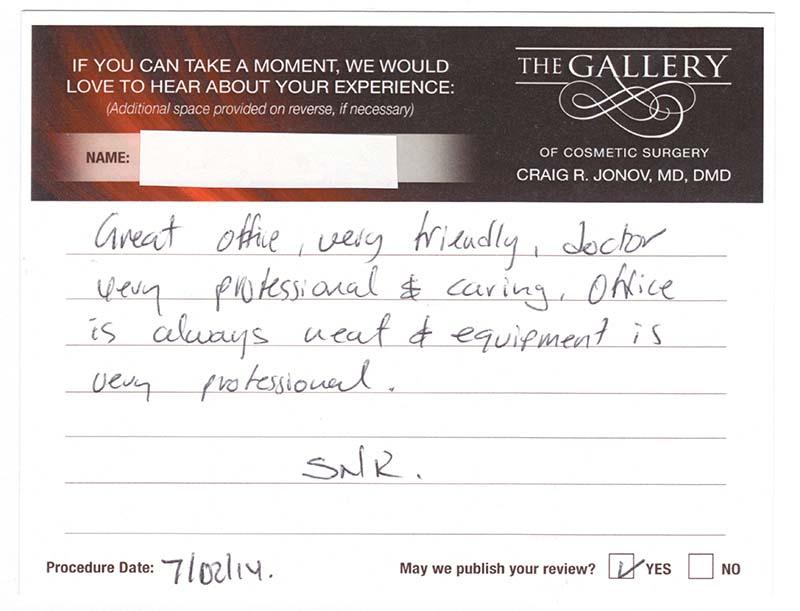 IF YOU CAN TAKE A MOMENT, WE WOULD
LOVE TO HEAR ABOUT YOUR EXPERIENCE:
(Additional space provided on reverse, if necessary)
NAME:
THE GALLERY
OF COSMETIC SURGERY
CRAIG R. JONOV, MD, DMD
Great office, very friendly, doctor
very professional & caring. Office
is always neat & equipment is
very professional.
SNR.
Procedure Date: 7/02/14.
May we publish your review? YES NO